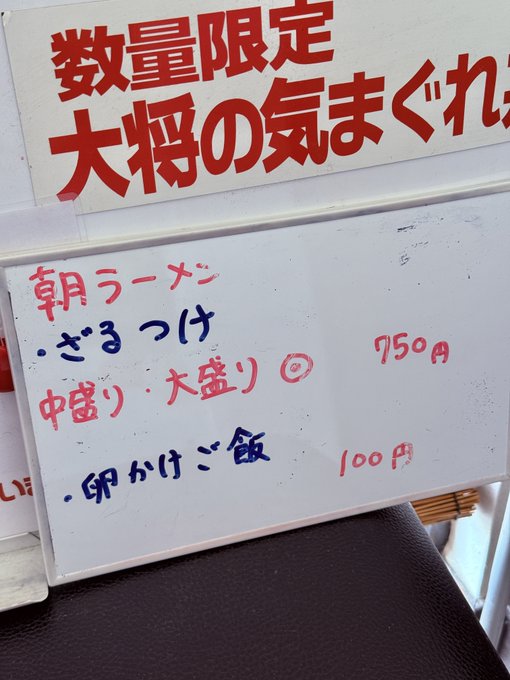 数量限定
大将の気まぐれ
朝ラーメン
・ざるつけ
中盛り・大盛り ◎ 750円
・卵かけご飯 100円